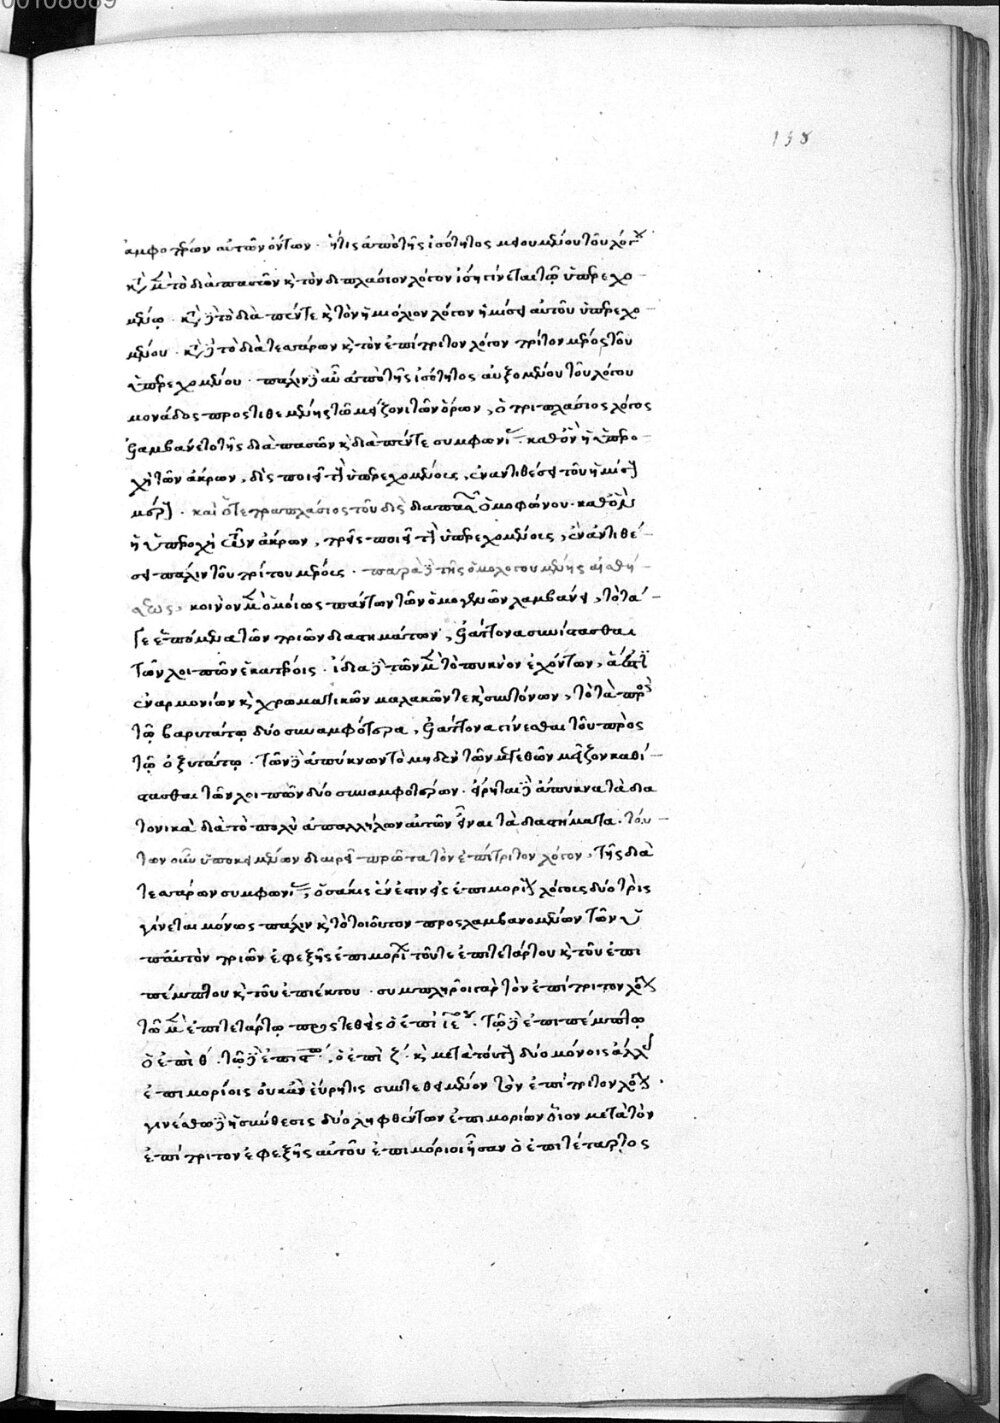 138
ἀμφοτέρων αὐτῶν ὄντων· ἥτις ἀπὸ τῆς ἰσότητος μειουμένου τοῦ λόγου
κατὰ μὲν τὸ διὰ πασῶν καὶ τὸν διπλάσιον λόγον ἴση γίνεται τῷ ὑπερεχο-
μένῳ· κατὰ δὲ τὸ διὰ πέντε καὶ τὸν ἡμιόλιον λόγον ἥμισυ αὐτοῦ ὑπερεχο-
μένου· κατὰ δὲ τὸ διὰ τεσσάρων καὶ τὸν ἐπίτριτον λόγον τρίτον μέρος τοῦ
ὑπερεχομένου· πάλιν δὲ αὖ ἀπὸ τῆς ἰσότητος αὐξομένου τοῦ λόγου
μονάδος προστιθεμένης τῷ μείζονι τῶν ὅρων, ὁ τριπλάσιος λόγος
ἐλαμβάνετο τῆς διὰ πασῶν καὶ διὰ πέντε συμφωνίας· καθ' ὃν ἡ ὑπερο-
χὴ τῶν ἄκρων, δὶς ποιεῖ τὸν ὑπερεχόμενον, ἐναντιθέσει τοῦ ἡμίσεος
μέρους· καὶ ὁ τετραπλάσιος τοῦ δὶς διὰ πασῶν ὁμοφώνου· καθ' ὃν
ἡ ὑπεροχὴ τῶν ἄκρων, τρὶς ποιεῖ τὸν ὑπερεχόμενον, ἐν ἀντιθέ-
σει πάλιν τοῦ τρίτου μέρους· παρὰ δὲ τῆς ὁμολογουμένης αἰσθή-
σεως, κοινὸν μὲν ὁμοίως πάντων τῶν ὁμογενῶν λαμβάνει, τὸ τὰ
γε ἑπόμενα τῶν τριῶν διαστημάτων, ἐλάττονα συνίστασθαι
τῶν λοιπῶν ἑκατέρου· ἴδια δὲ τῶν μὲν τὸ πυκνὸν ἐχόντων, ἅπερ ἐστὶ
ἐναρμονίων καὶ χρωματικῶν μαλακῶν τε καὶ συντόνων, τὸ τὰ πρὸς
τῷ βαρυτάτῳ δύο συναμφότερα, ἐλάττονα γίνεσθαι τοῦ πρὸς
τῷ ὀξυτάτῳ· τῶν δὲ ἀπύκνων τὸ μηδὲν τῶν μεγεθῶν μεῖζον καθί-
στασθαι τῶν λοιπῶν δύο συναμφοτέρων· εἴρηται δὲ ἄπυκνα τὰ δια
τονικὰ διὰ τὸ πολὺ ἀπ' ἀλλήλων αὐτῶν εἶναι τὰ διαστήματα· τού-
των οὖν ὑποκειμένων διαιρεῖ πρῶτα τὸν ἐπίτριτον λόγον, τῆς διὰ
τεσσάρων συμφωνίας, ὁσάκις ἐνέστιν εἰς ἐπιμορίους λόγους δύο τρὶς
γίνεται μόνως πάλιν καὶ τὸ τοιοῦτον προσλαμβανομένων τῶν ὑ
π' αὐτὸν τριῶν ἐφεξῆς ἐπιμορίων τοῦ τε ἐπιτετάρτου καὶ τοῦ ἐπι
πέμπτου καὶ τοῦ ἐπιέκτου· συμπληροῖ γὰρ τὸν ἐπίτριτον λόγον
τῷ μὲν ἐπιτετάρτῳ προστεθεὶς ὁ ἐπὶ ιεου· τῷ δὲ ἐπιπέμπτῳ
ὁ ἐπὶ θ´· τῷ δὲ ἐπι ϛῳ, ὁ ἐπὶ ζ´· καὶ μετὰ τούτων δύο μόνοις ἄλλοις
ἐπιμορίοις οὐκ ἂν εὕρῃ τις συντεθειμένον τὸν ἐπίτριτον λόγον·
γινέσθω δὲ ἡ σύνθεσις δύο ληφθέντων ἐπιμορίων οἷον μετὰ τὸν
ἐπίτριτον ἐφεξῆς αὐτοῦ ἐπιμόριοι ἦσαν ὁ ἐπιτέταρτος